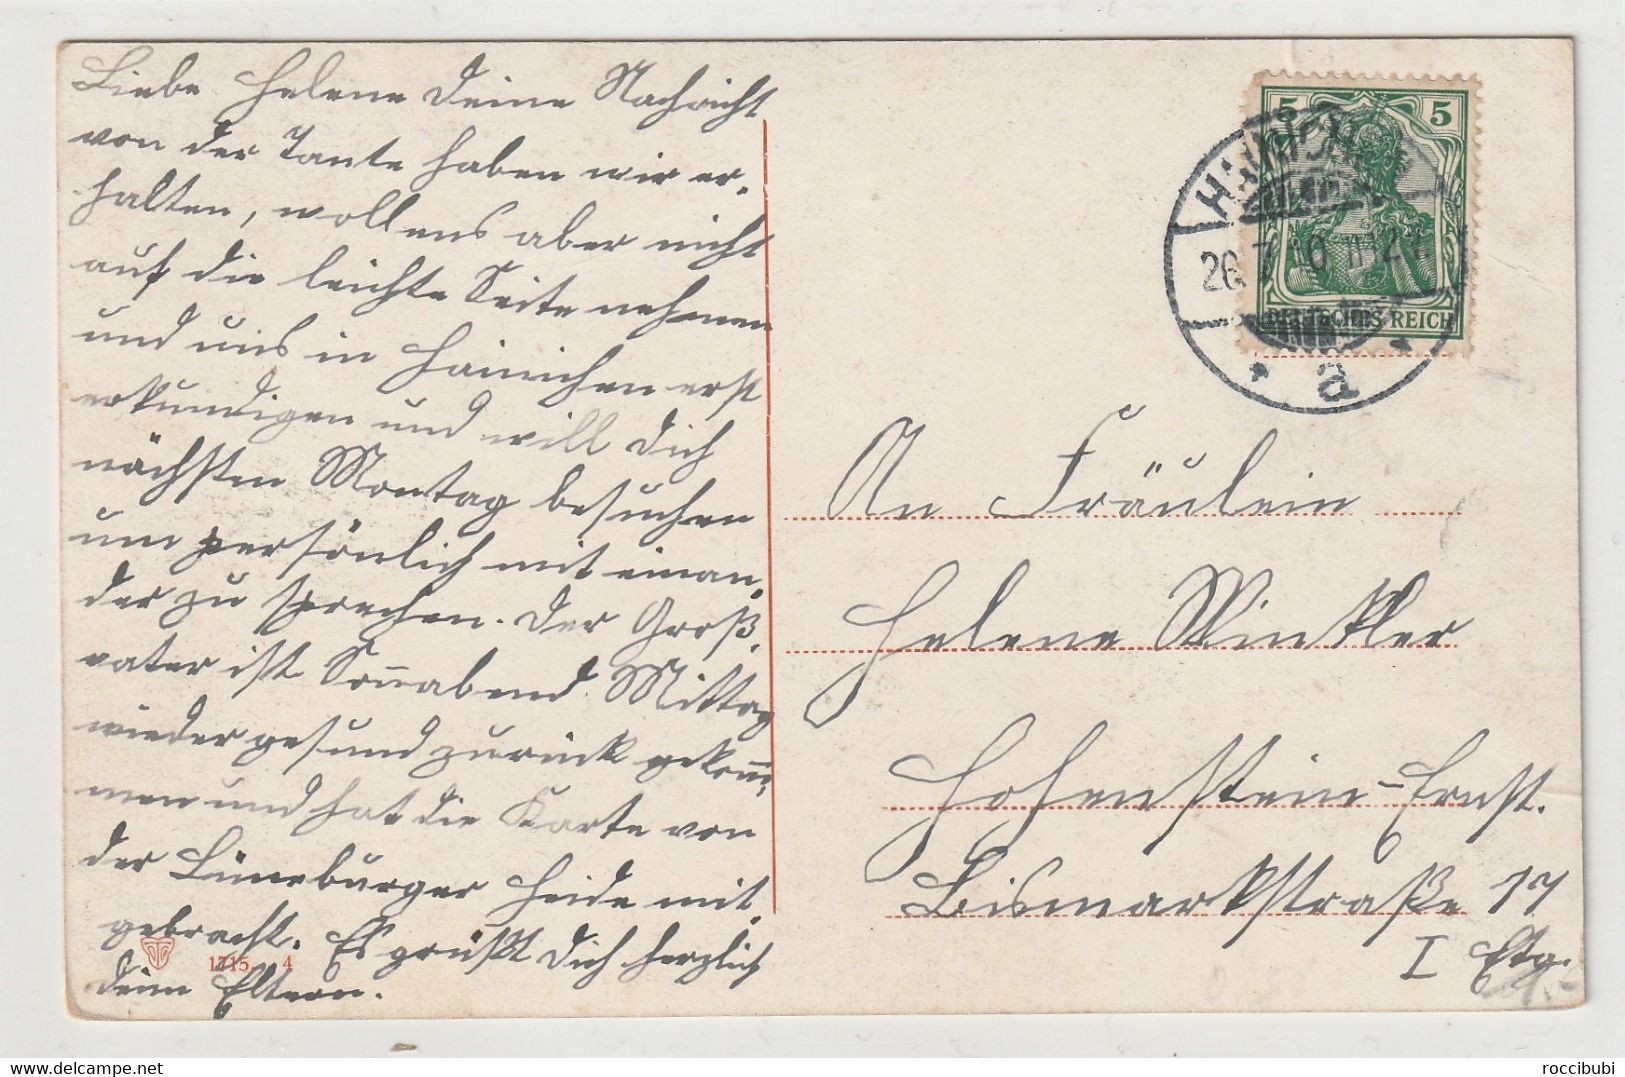 Liebe Helene Deine Nachricht
von der Tante haben wir er-
halten, wollens aber nicht
auf die leichte Seite nehmen
und uns in Hainichen erst
erkundigen und will Dich
nächsten Montag besuchen
um persönlich mit einan-
der zu sprechen. Der Groß-
vater ist Sonnabend Mittag
wieder gesund zurück gekom-
men und hat die Karte von
der Lüneburger Heide mit-
gebracht. Es grüßt Dich herzlich
deine Eltern.
1715. 4
5 5
DEUTSCHES REICH
HAINICHEN
26.7.10. 11-12
a
An Fräulein
Helene Winkler
Hohenstein-Ernst.
Bismarkstraße 17
I Etg.
delcampe.net
roccibubi